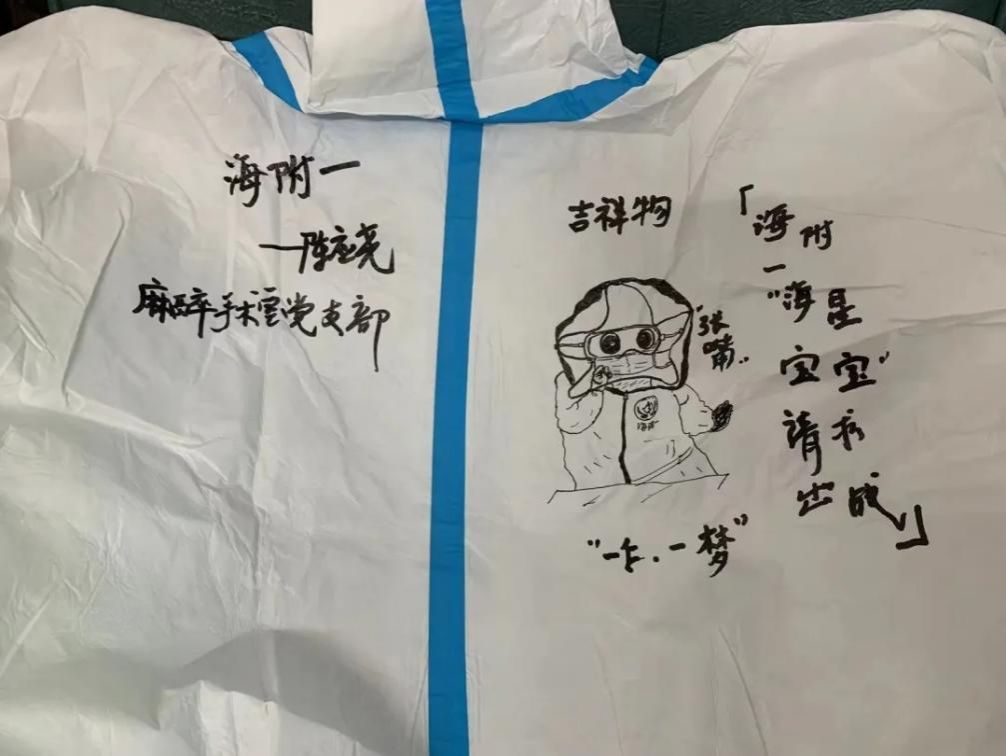 海附一
一陈应尧
麻醉手术室党支部
吉祥物
"张
嘴"
海附
"一·一梦"
「海附
一
"海星
宝宝"
请求
出战」